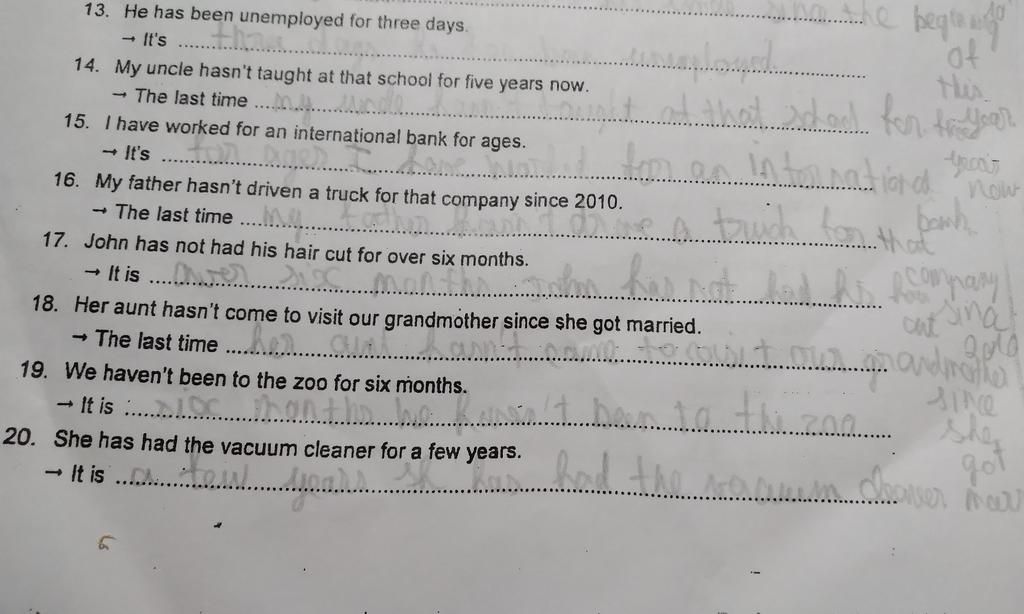 the begining
13. He has been unemployed for three days.
of
→ It's three days unemployed
this
14. My uncle hasn't taught at that school for five years now.
year
→ The last time my uncle hasn't taught at that school for five
years
15. I have worked for an international bank for ages.
now
→ It's for ages I have worked for an international
bank
16. My father hasn't driven a truck for that company since 2010.
→ The last time my father hasn't drive a truck for that
company
17. John has not had his hair cut for over six months.
since
→ It is over six months John has not had his hair
cut
2010
18. Her aunt hasn't come to visit our grandmother since she got married.
→ The last time her aunt hasn't come to visit our grandmother
since
19. We haven't been to the zoo for six months.
she
→ It is six months we haven't been to the zoo
got
20. She has had the vacuum cleaner for a few years.
→ It is a few years she has had the vacuum cleaner